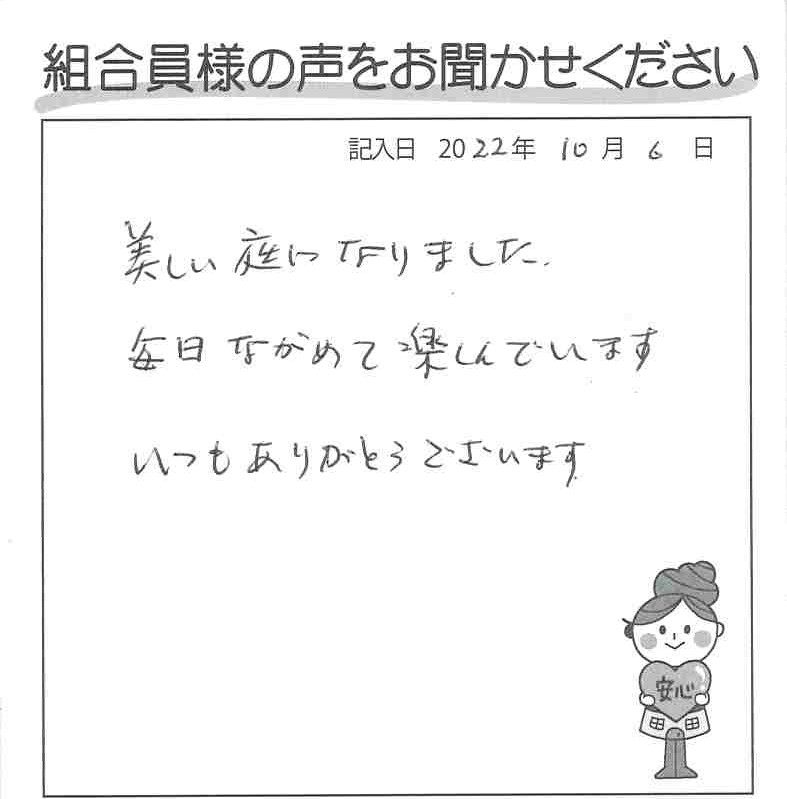 組合員様の声をお聞かせください
記入日 2022年 10月 6日
美しい庭になりました.
毎日ながめて楽しんでいます
いつもありがとうございます
安心